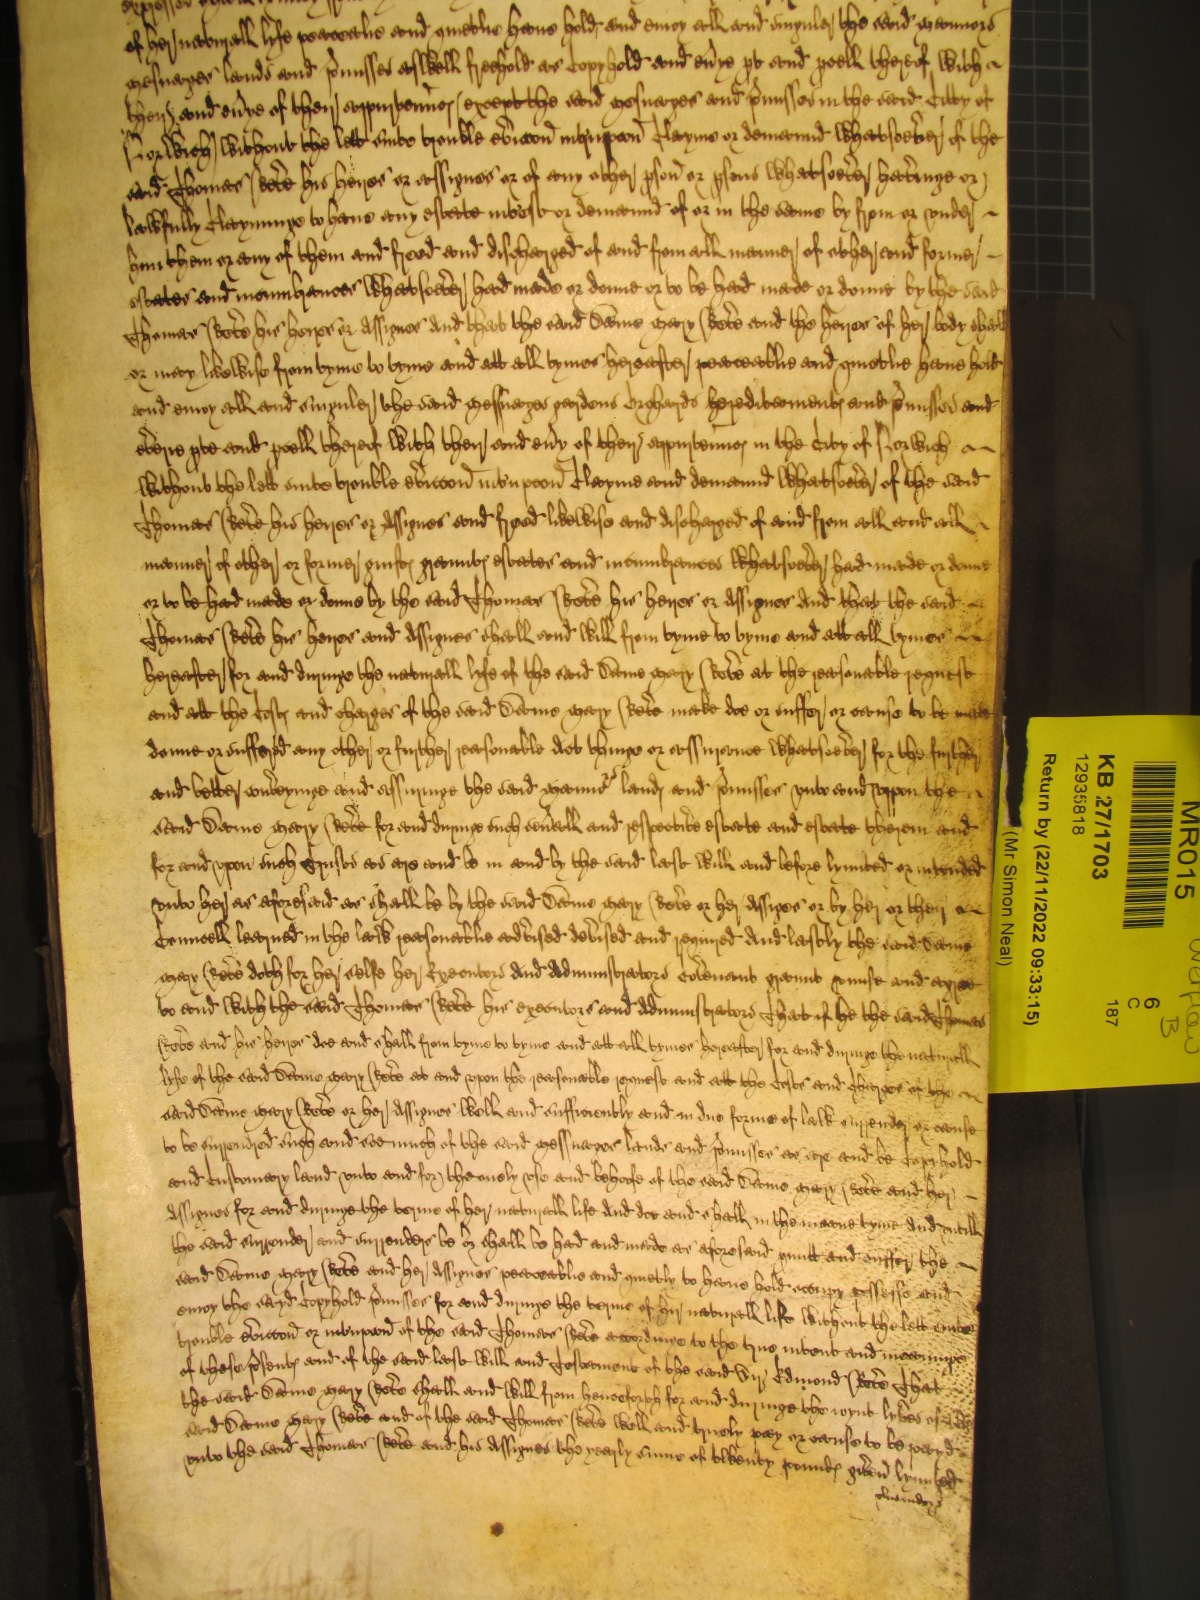 of her naturall lyfe peaceablie and quietlie have hold and enioy all and singuler the said mannors
mesuages lands and p'misses aswell freehold as Copyhold and ev'ye pt and p'cell thereof with
their and ev'ye of their appurtenncs except the said mesuages and p'misses in the said Citty of
Norwich without the lett suite trouble evic'con int'rupcon Clayme or demaund whatsoever of the
said Thomas Reve his heires or assignes or of any other p'son or p'sons whatsoever haveinge or
lawfully Clayminge to have any estate int'est or demaund of or in the same by from or under
him them or any of them and freed and discharged of and from all manner of other and former
estates and incumbrances whatsoever had made or donne or to be had made or donne by the said
Thomas Reve his heires or Assignes And that the said Dame Mary Reve and the heires of her body shall
or may likewise from tyme to tyme and att all tymes hereafter peaceablie and quietlie have hold
and enioy all and singuler the said messuages gardens Orchards hereditaments and p'misses and
everie pte and p'cell thereof with their and ev'y of their appurtenncs in the City of Norwich
without the lett suite trouble evic'con int'rupcon Clayme and demaund whatsoever of the said
Thomas Reve his heires or Assignes and freed likewise and discharged of and from all and all
manner of other or former guifts graunts estates and incumbrances whatsoever had made or donne
or to be had made or donne by the said Thomas Reve his heires or Assignes And that the said
Thomas Reve his heires and Assignes shall and will from tyme to tyme and att all tymes
hereafter for and duringe the naturall lyfe of the said Dame Mary Reve at the reasonable request
and att the Costs and charges of the said Dame Mary Reve make doe or suffer or cause to be made
donne or suffered any other or further reasonable Act thinge or assurance whatsoever for the further
and better conveyinge and assuringe the said mannors lands and p'misses unto and uppon the
said Dame Mary Reve for and duringe such sev'all and respective estate and estate therein and
for and upon such Trusts as are and be in and by the said last will and before lymited or intended
unto her as aforesaid as shall be by the said Dame Mary Reve or her Assignes or by her or their
Councell learned in the lawe reasonable advised devised and required And lastly the said Dame
Mary Reve doth for her selfe her Executors And Administrators Covenant graunt p'mise and agree
to and with the said Thomas Reve his executors and Administrators That if he the said Thomas
Reve and his heires doe and shall from tyme to tyme and att all tymes hereafter for and duringe the naturall
lyfe of the said Dame Mary Reve at and upon the reasonable request and att the Costs and Charges of the
said Dame Mary Reve or her Assignes well and sufficiently and in due forme of law surrender or cause
to be surrendred such and soe much of the said messuages lands and p'misses as are and be Copyhold
and customary land unto and for the onely use and behoofe of the said Dame Mary Reve and her
Assignes for and duringe the terme of her naturall life And doe and shall in the meane tyme And untill
the said surrender and surrenders be or shall be had and made as aforesaid p'mitt and suffer the
said Dame Mary Reve and her Assignes peaceablie and quietly to have hold occupy possesse and
enioy the sayd Copyhold p'misses for and duringe the terme of her naturall life without the lett suite
trouble evic'con or int'rupcon of the said Thomas Reve accordinge to the true intent and meaninge
of these p'sents and of the said last will and Testament of the said Sir Edmond Reve That
the said Dame Mary Reve shall and will from henceforth for and duringe the ioynt lyves of the
said Dame Mary Reve and of the said Thomas Reve well and truely pay or cause to be payd
unto the said Thomas Reve and his Assignes the yearly summe of twenty pounds given lymited
MR015
KB 27/1703
12935818
Return by (22/11/2022 09:33:15)
(Mr Simon Neal)
187
6
C
B